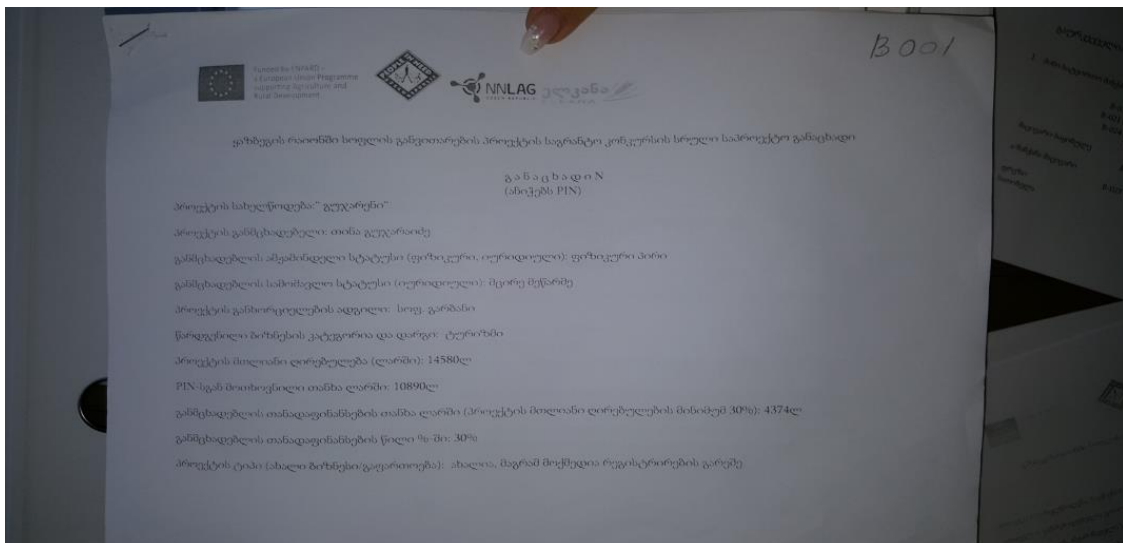 B 001
Funded by ENPARD -
a European Union Programme
supporting Agriculture and
Rural Development
NNLAG
CZECH REPUBLIC
ელკანა
ყაზბეგის რაიონში სოფლის განვითარების პროექტის საგრანტო კონკურსის სრული საპროექტო განაცხადი
გ ა ნ ა ც ხ ა დ ი N
(ანიჭებს PIN)
პროექტის სახელწოდება:" გუჯარენი"
პროექტის განმცხადებელი: თინა გუჯარაიძე
განმცხადებლის ამჟამინდელი სტატუსი (ფიზიკური, იურიდიული): ფიზიკური პირი
განმცხადებლის სამომავლო სტატუსი (იურიდიული): მცირე მეწარმე
პროექტის განხორციელების ადგილი: სოფ. გარბანი
წარდგენილი ბიზნესის კატეგორია და დარგი: ტურიზმი
პროექტის მთლიანი ღირებულება (ლარში): 14580ლ
PIN-სგან მოთხოვნილი თანხა ლარში: 10890ლ
განმცხადებლის თანადაფინანსების თანხა ლარში (პროექტის მთლიანი ღირებულების მინიმუმ 30%): 4374ლ
განმცხადებლის თანადაფინანსების წილი %-ში: 30%
პროექტის ტიპი (ახალი ბიზნესი/გაფართოება): ახალია, მაგრამ მოქმედია რეგისტრირების გარეშე